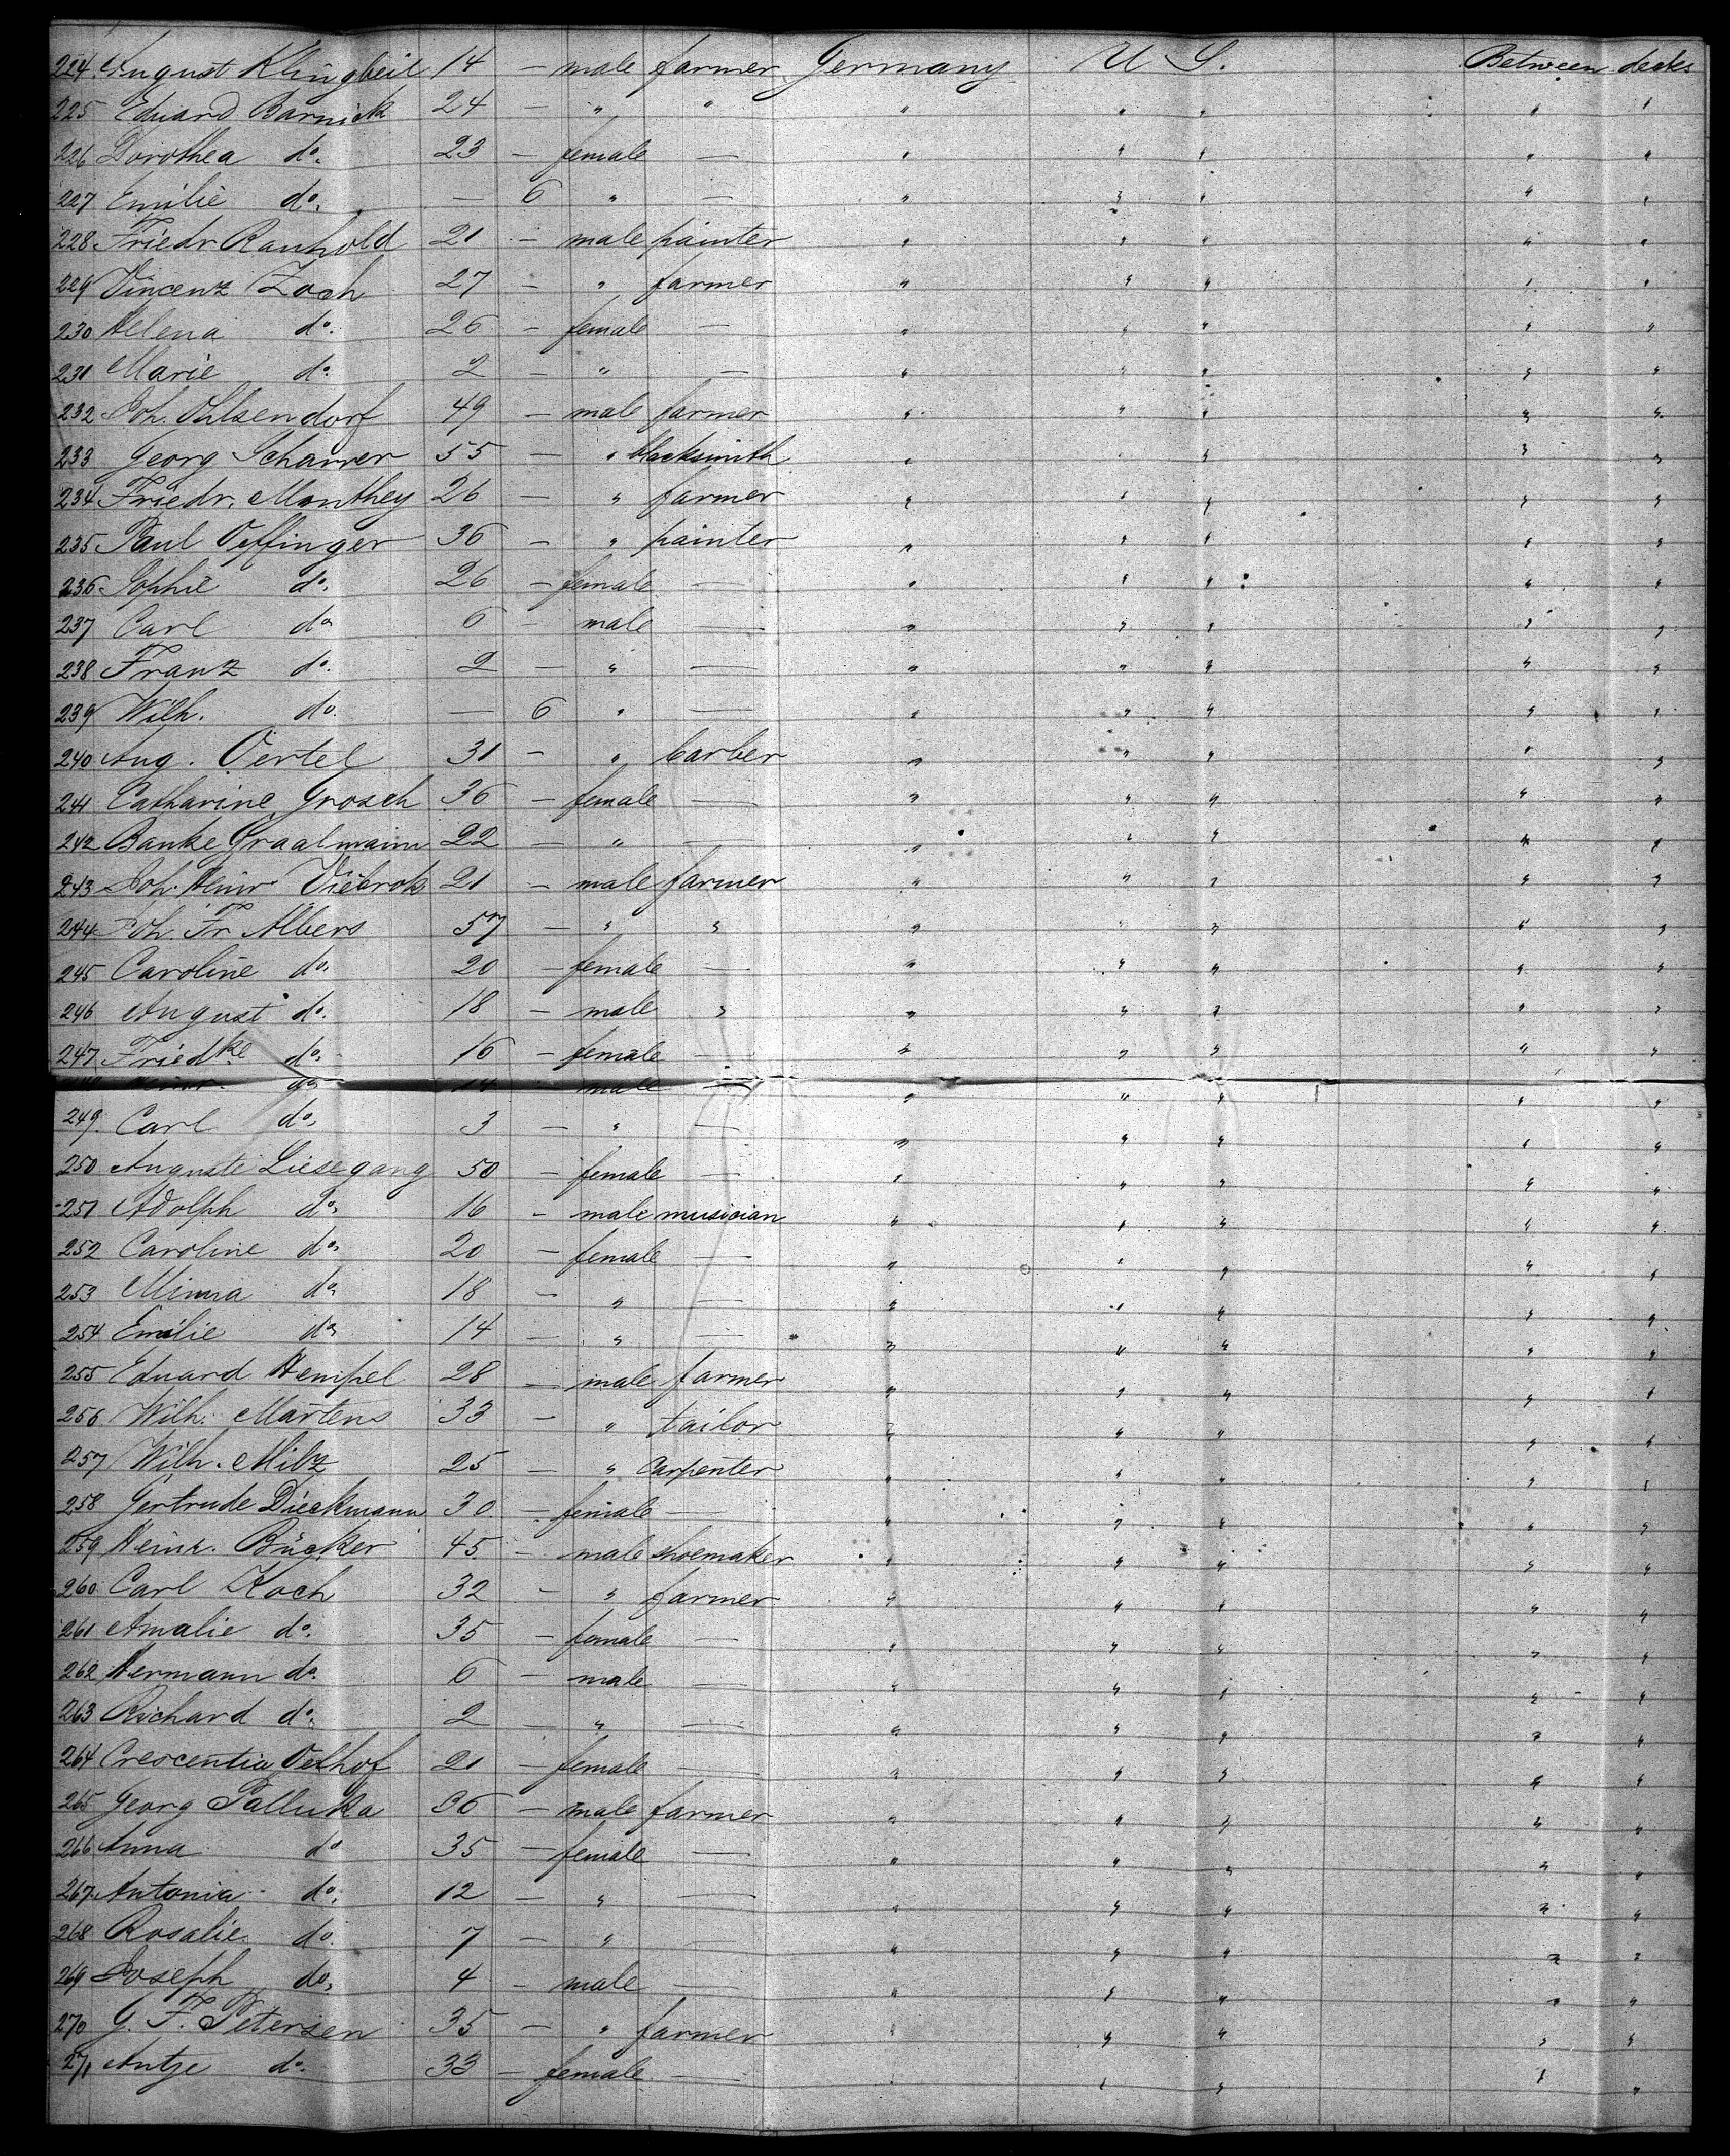 224. August Klingbeil 14 — male farmer Germany U S. Between decks
225 Eduard Barnick 24 — " " " " " " "
226 Dorothea do. 23 — female — " " " " "
227 Emilie do. — 6 " — " " " " "
228. Friedr Ranhold 21 — male painter " " " " "
229 Vincenz Zoch 27 — " farmer " " " " "
230 Helena do. 26 — female — " " " " "
231 Marie do. 2 — " — " " " " "
232. Joh. Ohlsendorf 49 — male farmer " " " " "
233 Georg Scharrer 55 — " blacksmith " " " " "
234 Friedr. Manthey 26 — " farmer " " " " "
235 Paul Oeffinger 36 — " painter " " " " "
236. Sophie do. 26 — female — " " " " "
237 Carl do 6 — male — " " " " "
238 Franz do. 2 — " — " " " " "
239 Wilh. do. — 6 " — " " " " "
240 Aug. Oertel 31 — " barber " " " " "
241 Catharine Grosch 36 — female — " " " " "
242 Banke Graalmann 22 — " — " " " " "
243 Joh. Heinr Viebrok 21 — male farmer " " " " "
244. Joh. Fr Albers 57 — " " " " " " "
245 Caroline do. 20 — female — " " " " "
246 August do. 18 — male " " " " " "
247. Friedke do. 16 — female — " " " " "
do 14 — male — " " " " "
249. Carl do. 3 — " — " " " " "
250 Auguste Liesegang 50 — female — " " " " "
251 Adolph do. 16 — male musician " " " " "
252 Caroline do. 20 — female — " " " " "
253 Minna do. 18 — " — " " " " "
254 Emilie do 14 — " — " " " " "
255 Eduard Hempel 28 — male farmer " " " " "
256 Wilh. Martens 33 — " tailor " " " " "
257 Wilh. Milz 25 — " Carpenter " " " " "
258 Gertrude Dieckmann 30. — female — " " " " "
259 Heinr. Bücker 45 — male shoemaker " " " " "
260 Carl Koch 32 — " farmer " " " " "
261 Amalie do. 35 — female — " " " " "
262 Hermann do. 6 — male — " " " " "
263 Richard do. 2 — " — " " " " "
264 Crescentia Oelhof 21 — female — " " " " "
265 Georg Palluka 36 — male farmer " " " " "
266 Anna do 35 — female — " " " " "
267. Antonia do. 12 — " — " " " " "
268 Rosalie do. 7 — " — " " " " "
269 Joseph do. 4 — male — " " " " "
270 G. F. Petersen 35 — " farmer " " " " "
271 Antje do. 33 — female — " " " " "